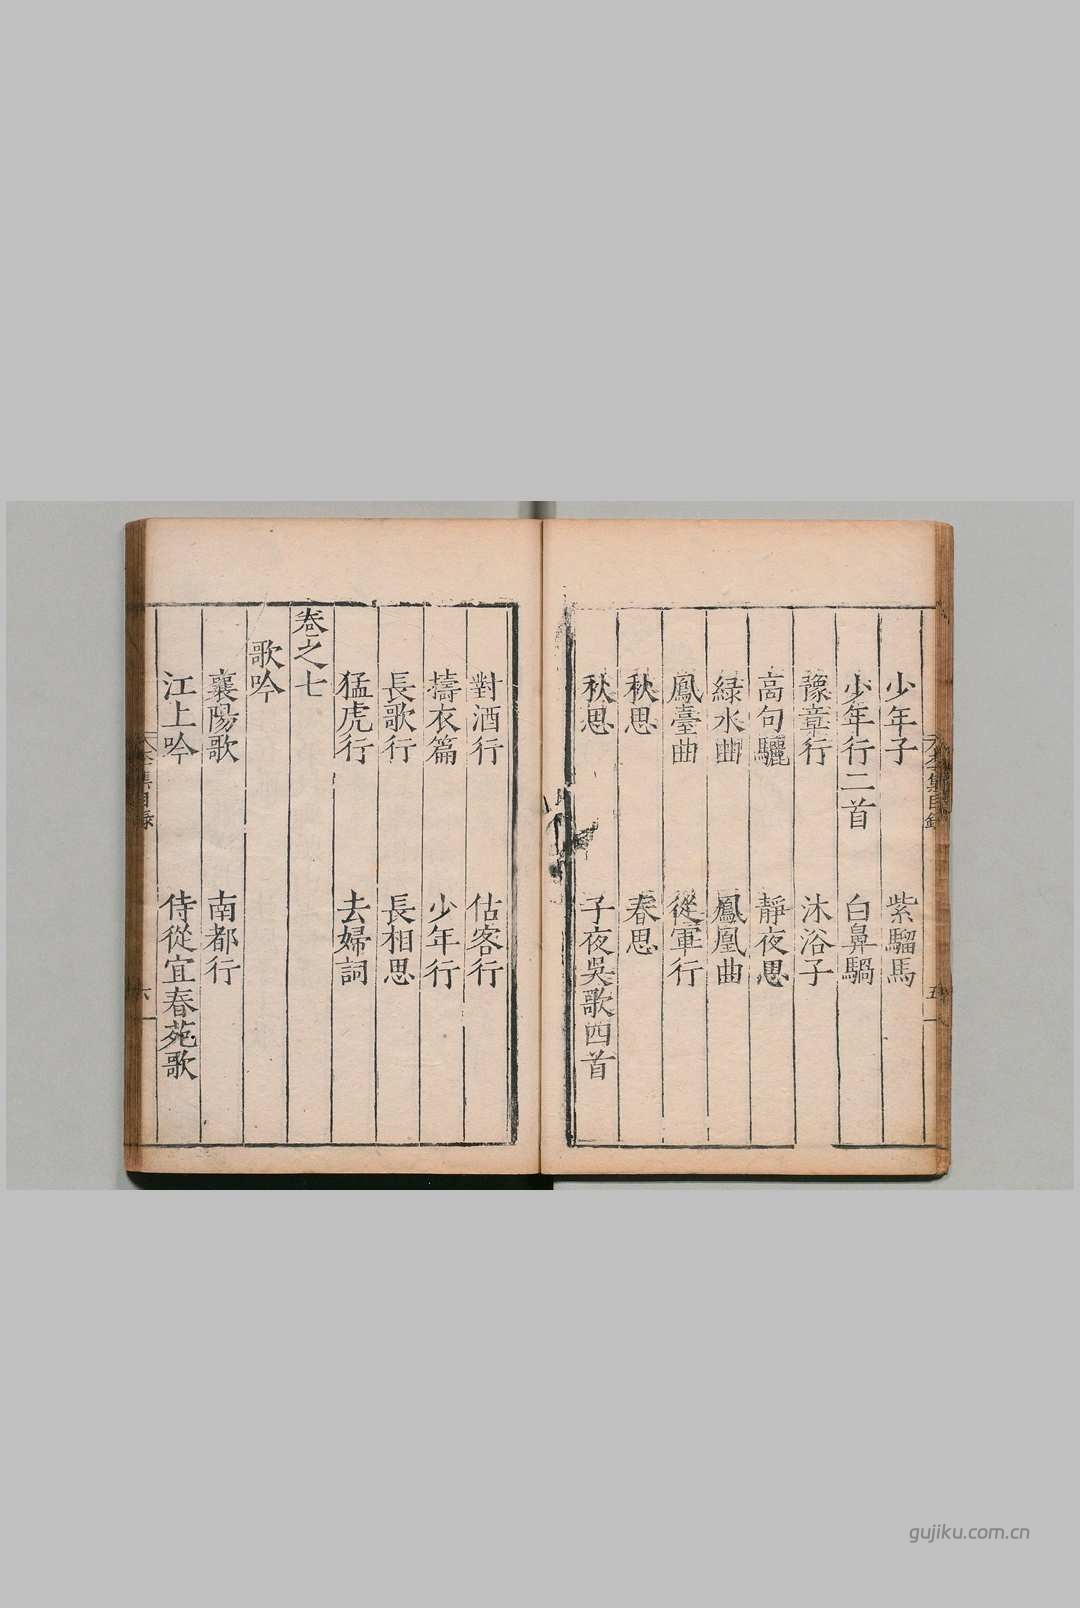 少年子 紫騮馬
少年行二首 白鼻騧
豫章行 沐浴子
高句驪 靜夜思
綠水曲 鳳凰曲
鳳臺曲 從軍行
秋思 春思
秋思 子夜吳歌四首
對酒行 估客行
擣衣篇 少年行
長歌行 長相思
猛虎行 去婦詞
卷之七
歌吟
襄陽歌 南都行
江上吟 侍從宜春苑歌
集目錄 六
gujiku.com.cn